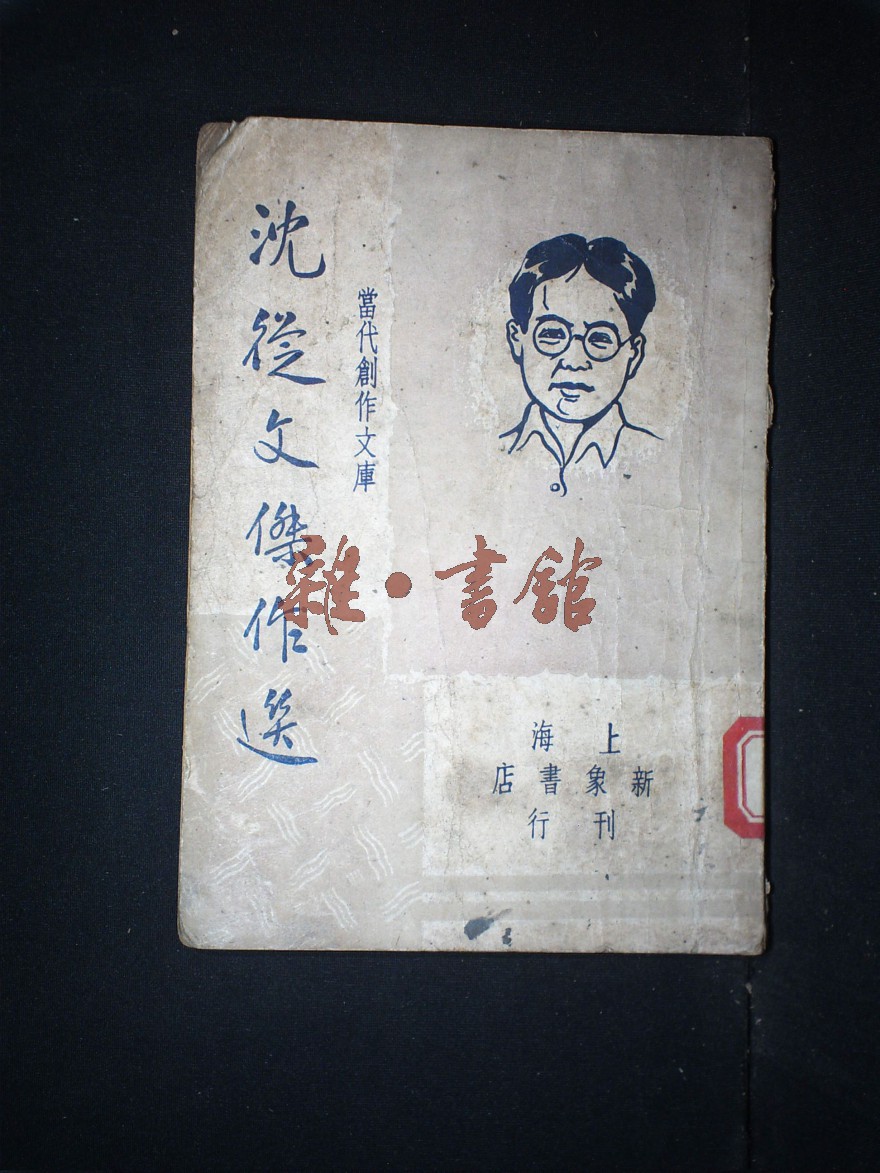 沈從文傑作選
當代創作文庫
雜·書館
上海
新象書店
刊行